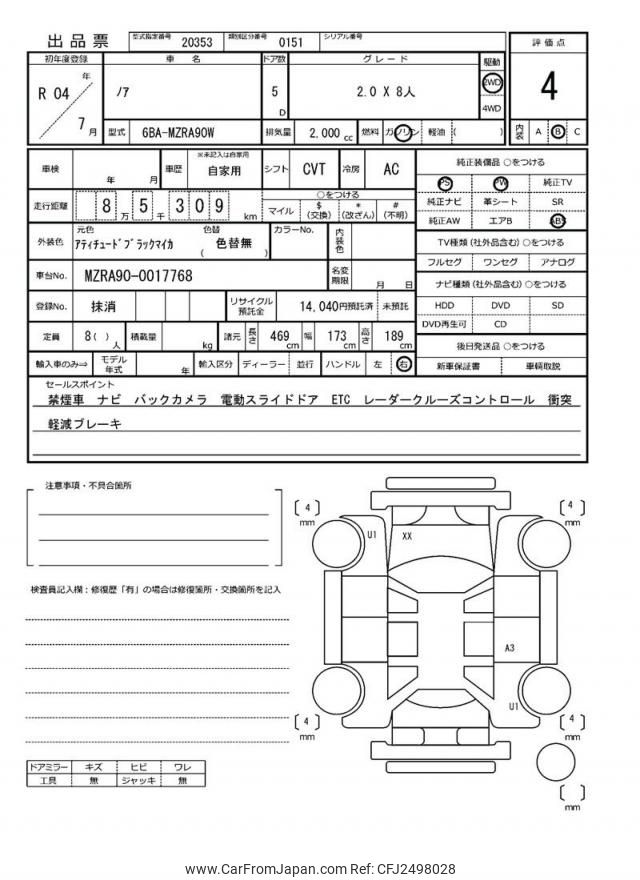 出品票 型式指定番号 20353 類別区分番号 0151 シリアル番号
初年度登録 車名 ドア数 グレード 駆動 評価点
R 04 年 7 月 ノア 5 D 2.0 X 8人 2WD 4WD 4
型式 6BA-MZRA90W 排気量 2,000 cc 燃料 ガソリン 軽油 ( ) 内装 A B C
車検 年 月 車歴 ※未記入は自家用 自家用 シフト CVT 冷房 AC 純正装備品 ○をつける
PS PW 純正TV
走行距離 8 万 5 千 3 0 9 km ○をつける 純正ナビ 革シート SR
マイル $ (交換) * (改ざん) # (不明) 純正AW エアB ABS
外装色 元色 アティチュードブラックマイカ 色替 ( 色替無 ) カラーNo. 内装色 TV種類 (社外品含む) ○をつける
フルセグ ワンセグ アナログ
車台No. MZRA90-0017768 名変期限 月 日 ナビ種類 (社外品含む) ○をつける
登録No. 抹消 リサイクル預託金 14,040円預託済 未預託 HDD DVD SD
DVD再生可 CD
定員 8( ) 人 積載量 kg 諸元 長さ 469 cm 幅 173 cm 高さ 189 cm 後日発送品 ○をつける
輸入車のみ⇒ モデル年式 年 輸入区分 ディーラー 並行 ハンドル 左 右 新車保証書 車輌取説
セールスポイント
禁煙車 ナビ バックカメラ 電動スライドドア ETC レーダークルーズコントロール 衝突
軽減ブレーキ
注意事項・不具合箇所
検査員記入欄：修復歴「有」の場合は修復箇所・交換箇所を記入
[ 4 ] mm
[ 4 ] mm
U1 XX
A3
U1
[ 4 ] mm
[ 4 ] mm
[ ] mm
ドアミラー キズ ヒビ ワレ
工具 無 ジャッキ 無
www.CarFromJapan.com Ref: CFJ2498028